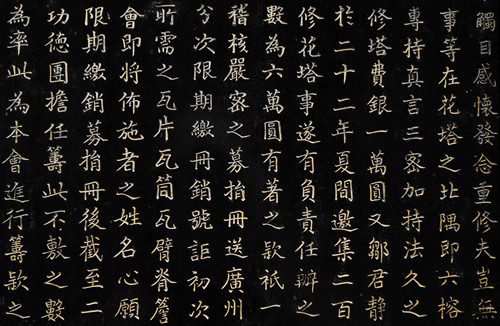 觸目感懷發念重修夫豈無
事等在花塔之北隅即六榕
專持真言三密加持法久之
修塔費銀一萬圓又鄒君靜
於二十二年夏間邀集二百
修花塔事遂有負責任辦之
數為六萬圓有著之欵祇一
稽核嚴密之募捐冊送廣州
分次限期繳冊銷號詎初次
所需之瓦片瓦筒瓦臂脊簷
會即將佈施者之姓名心願
限期繳銷募捐冊後截至二
功德團擔任籌此不敷之數
為率此為本會進行籌欵之